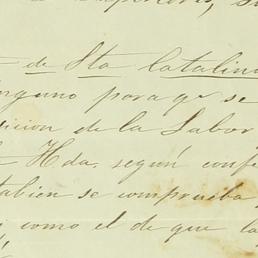 de Sta Catalina
inguno para qe se
icion de la Labor
Hda. según conf
tabien se comprueba
como el de que la